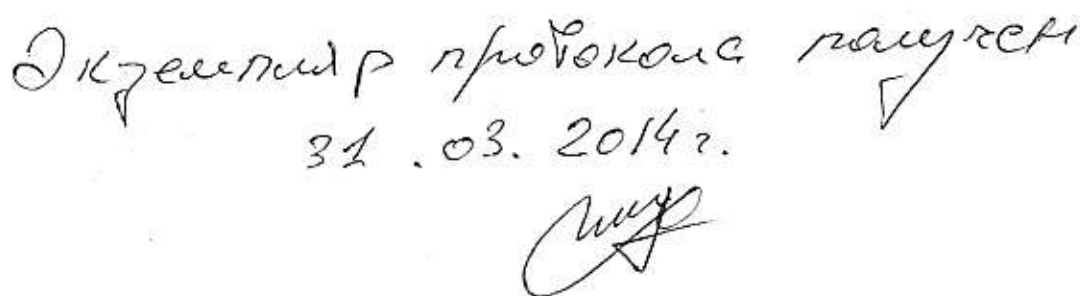 Экземпляр протокола получен
31.03.2014г.